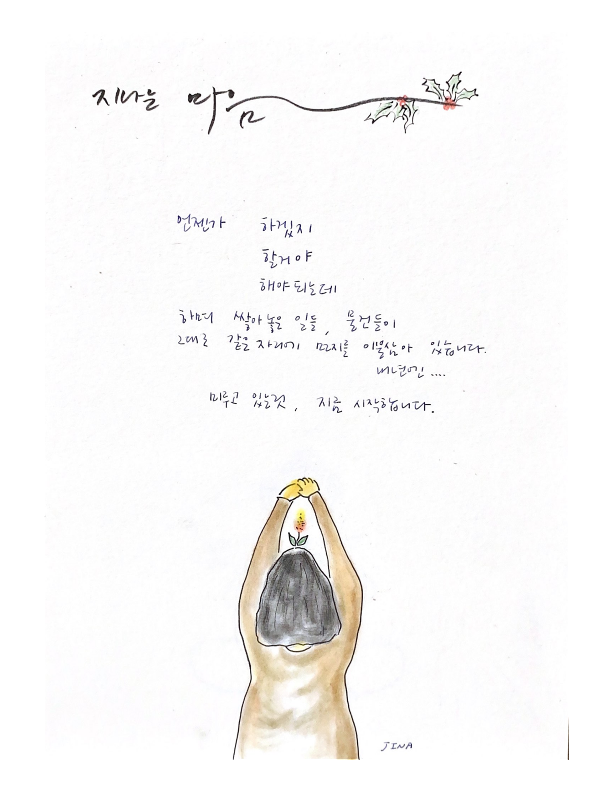 지나는 마음
언젠가 하겠지
할거야
해야 되는데
하며 쌓아 놓은 일들, 물건들이
그대로 같은 자리에 먼지를 이불삼아 있습니다.
내년엔 ....
미루고 있는것, 지금 시작합니다.
JINA